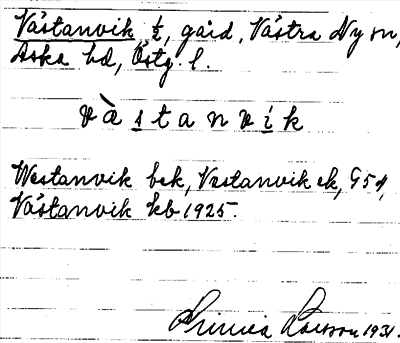 Västanvik ½, gård, Västra Ny sn,
Aska hd, Östg. l.
v à s t a n v i k
Westanvik bek, Vestanvik ek, G54,
Västanvik kb 1925.
Larsson 1931.